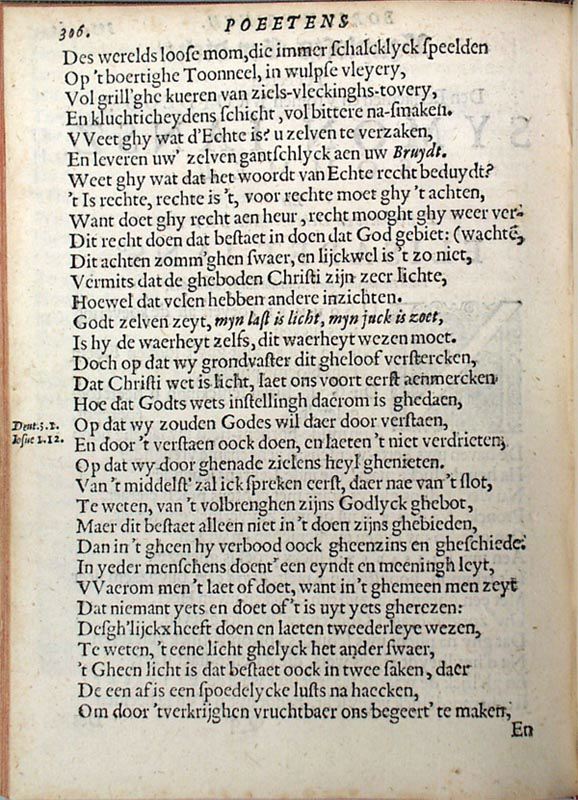 306. POEETENS
Des werelds loose mom, die immer schalcklyck speelden
Op 't boertighe Toonneel, in wulpse vleyery,
Vol grill'ghe kueren van ziels-vleckinghs-tovery,
En kluchticheydens schicht, vol bittere na-smaken.
VVeet ghy wat d'Echte is? u zelven te verzaken,
En leveren uw' zelven gantschlyck aen uw Bruydt.
Weet ghy wat dat het woordt van Echte recht beduydt?
't Is rechte, rechte is 't, voor rechte moet ghy 't achten,
Want doet ghy recht aen heur, recht mooght ghy weer ver-
Dit recht doen dat bestaet in doen dat God gebiet: (wachtē,
Dit achten zomm'ghen swaer, en lijckwel is 't zo niet,
Vermits dat de gheboden Christi zijn zeer lichte,
Hoewel dat velen hebben andere inzichten.
Godt zelven zeyt, myn last is licht, myn juck is zoet,
Is hy de waerheyt zelfs, dit waerheyt wezen moet.
Doch op dat wy grondvaster dit gheloof verstercken,
Dat Christi wet is licht, laet ons voort eerst aenmercken
Hoe dat Godts wets instellingh daerom is ghedaen,
Deut. 5. 1. Op dat wy zouden Godes wil daer door verstaen,
Iosue 1. 12. En door 't verstaen oock doen, en laeten 't niet verdrieten;
Op dat wy door ghenade zielens heyl ghenieten.
Van 't middelst' zal ick spreken eerst, daer nae van 't slot,
Te weten, van 't volbrenghen zijns Godlyck ghebot,
Maer dit bestaet alleen niet in 't doen zijns ghebieden,
Dan in 't gheen hy verbood oock gheenzins en gheschiede:
In yeder menschens doent' een eyndt en meeningh leyt,
VVaerom men 't laet of doet, want in 't ghemeen men zeyt
Dat niemant yets en doet of 't is uyt yets gherezen:
Desgh'lijckx heeft doen en laeten tweederleye wezen,
Te weten, 't eene licht ghelyck het ander swaer,
't Gheen licht is dat bestaet oock in twee saken, daer
De een af is een spoedelycke lusts na haecken,
Om door 'tverkrijghen vruchtbaer ons begeert' te maken,
En